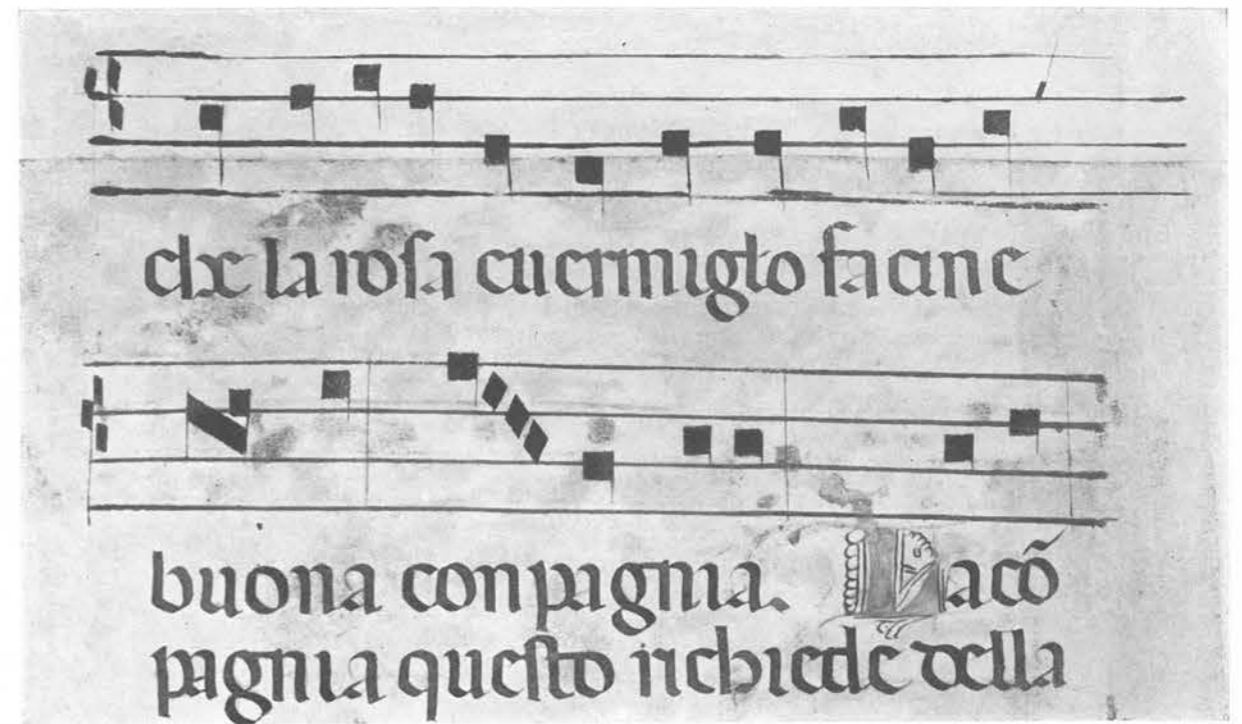 che la rosa cuermiglo fa cine
buona conpagnia. La cō
pagnia questo richiede della